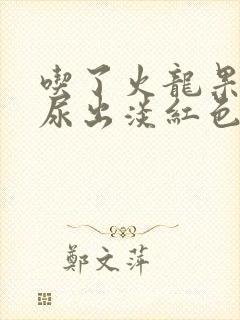 喫了火龍果
尿出淡紅色
鄭文萍